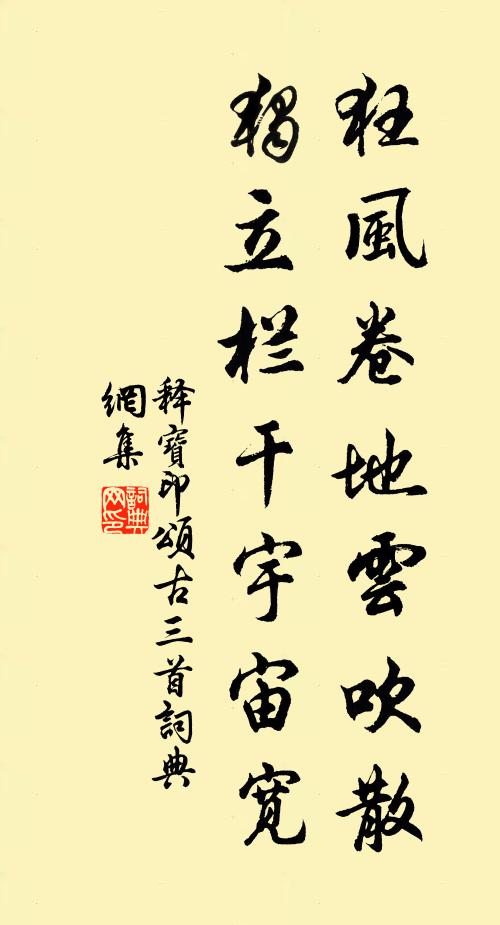 狂風卷地雲吹散
獨立栏干宇宙寬
释寶印頌古三首詞典
網集
詞典
网印